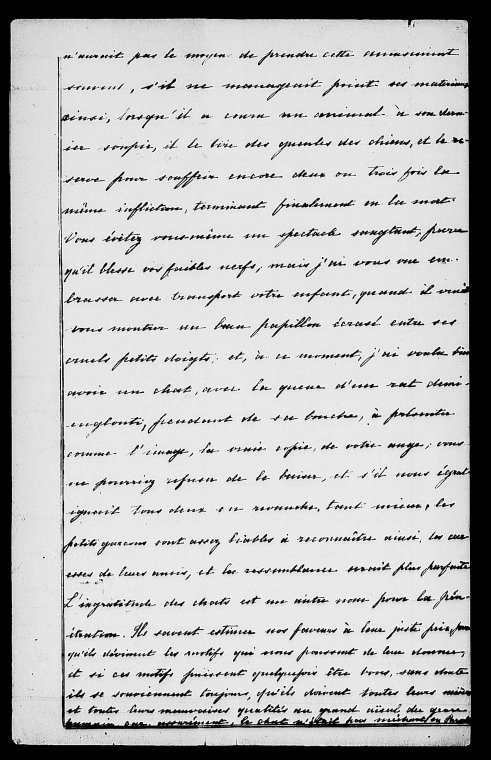 n'aurait pas le moyen de prendre cette amusement
souvent, s'il ne managerait point ses materiaux
ainsi, lorsqu'il a couru un animal à son dern-
ier soupir, il le tire des gueules des chiens, et le re-
serve pour souffrir encore deux ou trois fois la
même infliction, terminant finalement en la mort.
Vous évitez vous-même un spectacle sanglant, parce
qu'il blesse vos faibles nerfs; mais j'ai vous vue em-
brasser avec transport votre enfant, quand il venait
vous montrer un beau papillon écrasé entre ses
cruels petits doigts; et, à ce moment, j'ai voulu bien
avoir un chat, avec la queue d'un rat demi-
englouti, pendant de sa bouche, à présenter
comme l'image, la vraie copie, de votre ange; vous
ne pourriez refuser de le baiser, et s'il nous égrat-
ignait tous deux en revanche, tant mieux, les
petits garcons sont assez liables à reconnaître ainsi les car-
esses de leurs amis, et la ressemblance serait plus parfaite
L'ingratitude des chats est un autre nom pour la pén-
étration. Ils savent estimer nos faveurs à leur juste prix, parce
qu'ils dévinent les motifs qui nous poussent de leur donner;
et si ces motifs puissent quelquefois être bons, sans doute
ils se souviennent toujours, qu'ils doivent toutes leurs misères
et toutes leurs mauvaises qualités au grand aïeul du genre
humain, car assurément, le chat n'était pas méchant en